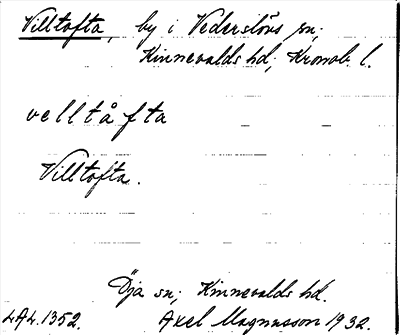 Villtofta, by i Vederslövs sn;
Kinnevalds hd; Kronob. l.
velltåfta
Villtofta.
Öja sn; Kinnevalds hd.
LAL. 1352. Axel Magnusson 1932.